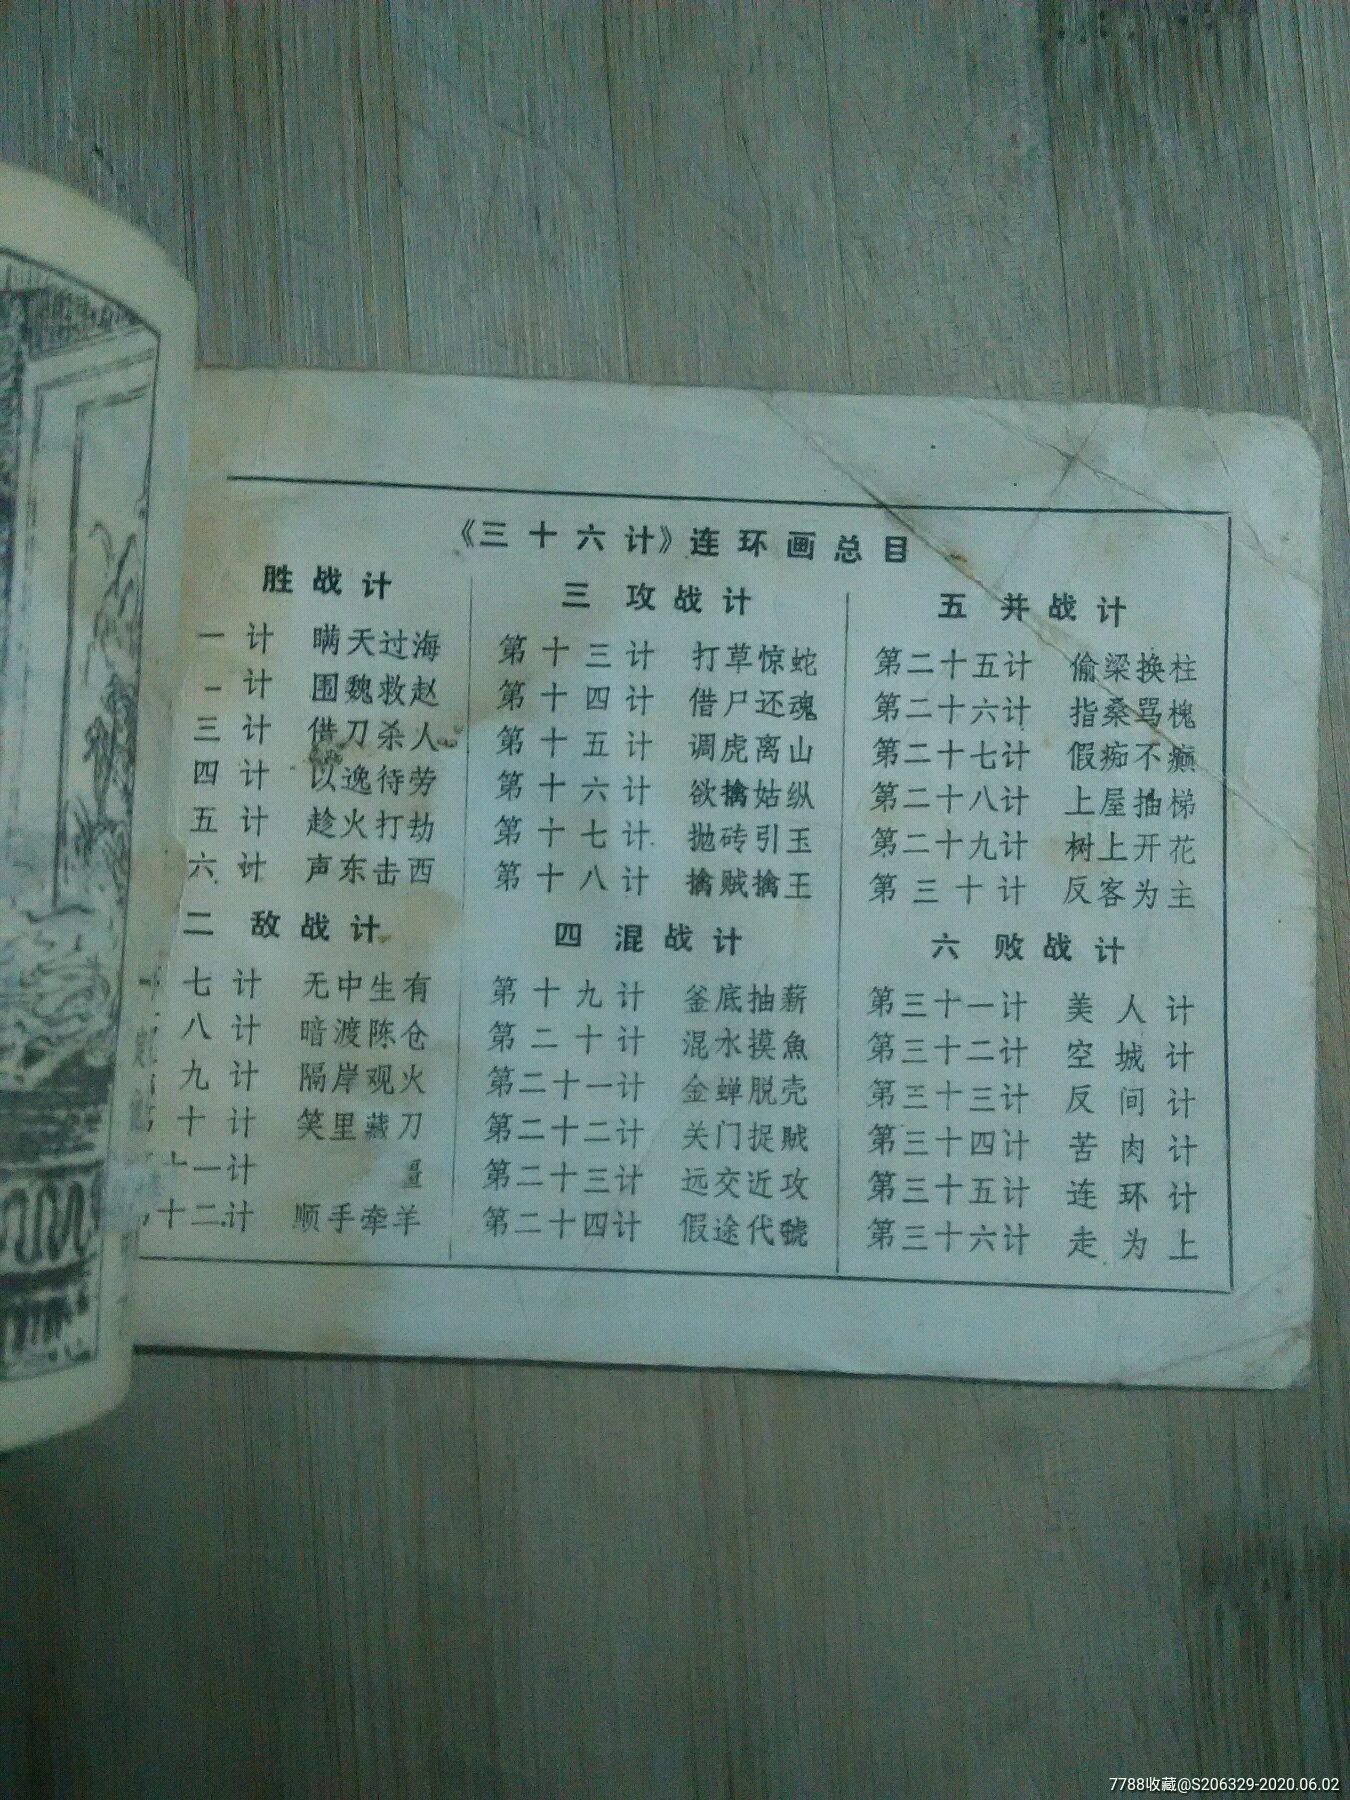 《三十六计》连环画总目
胜战计
一计 瞒天过海
计 围魏救赵
三计 借刀杀人
四计 以逸待劳
五计 趁火打劫
六计 声东击西
二 敌战计
七计 无中生有
八计 暗渡陈仓
九计 隔岸观火
十计 笑里藏刀
十一计
十二计 顺手牵羊
三 攻战计
第十三计 打草惊蛇
第十四计 借尸还魂
第十五计 调虎离山
第十六计 欲擒姑纵
第十七计 抛砖引玉
第十八计 擒贼擒王
四 混战计
第十九计 釜底抽薪
第二十计 混水摸魚
第二十一计 金蝉脱壳
第二十二计 关门捉贼
第二十三计 远交近攻
第二十四计 假途代虢
五 并战计
第二十五计 偷梁换柱
第二十六计 指桑骂槐
第二十七计 假痴不癫
第二十八计 上屋抽梯
第二十九计 树上开花
第三十计 反客为主
六 败战计
第三十一计 美人计
第三十二计 空城计
第三十三计 反间计
第三十四计 苦肉计
第三十五计 连环计
第三十六计 走为上
7788收藏@S206329-2020.06.02